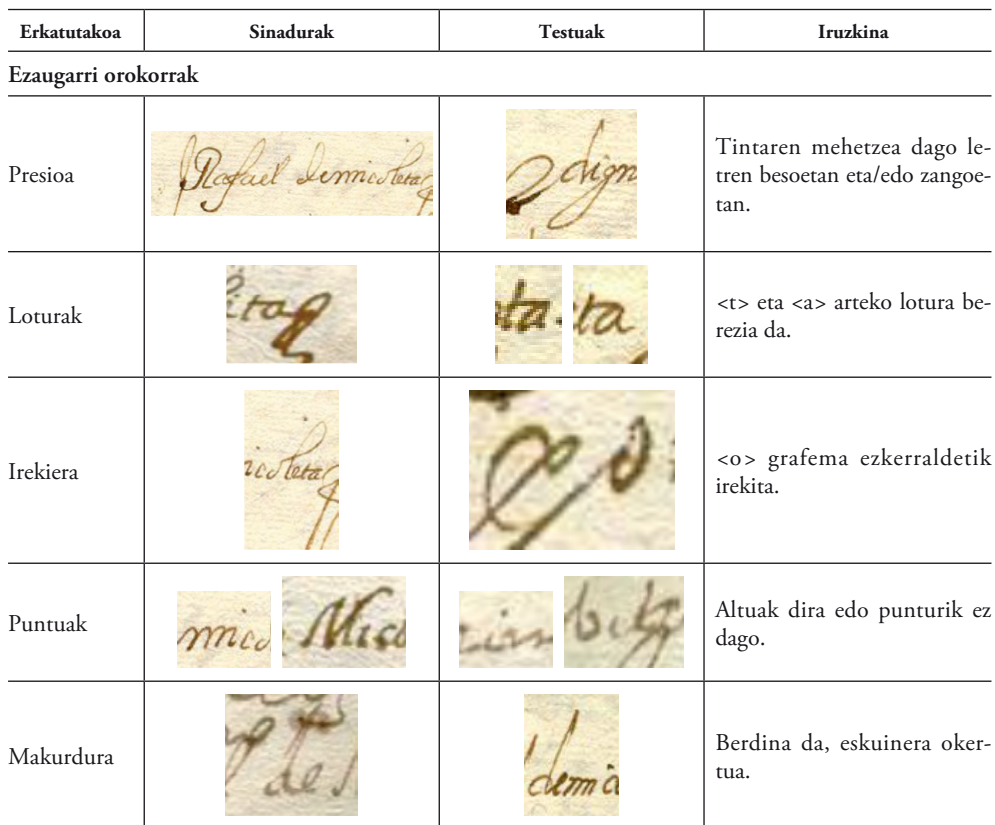 Erkatutakoa Sinadurak Testuak Iruzkina
Ezaugarri orokorrak
Presioa
Rafael demicoleta
dign
Tintaren mehetzea dago le-
tren besoetan eta/edo zangoe-
tan.
Loturak
ta
ta
<t> eta <a> arteko lotura be-
rezia da.
Irekiera
icoleta
<o> grafema ezkerraldetik
irekita.
Puntuak
mico
Mico
Altuak dira edo punturik ez
dago.
Makurdura
de
demic
Berdina da, eskuinera oker-
tua.